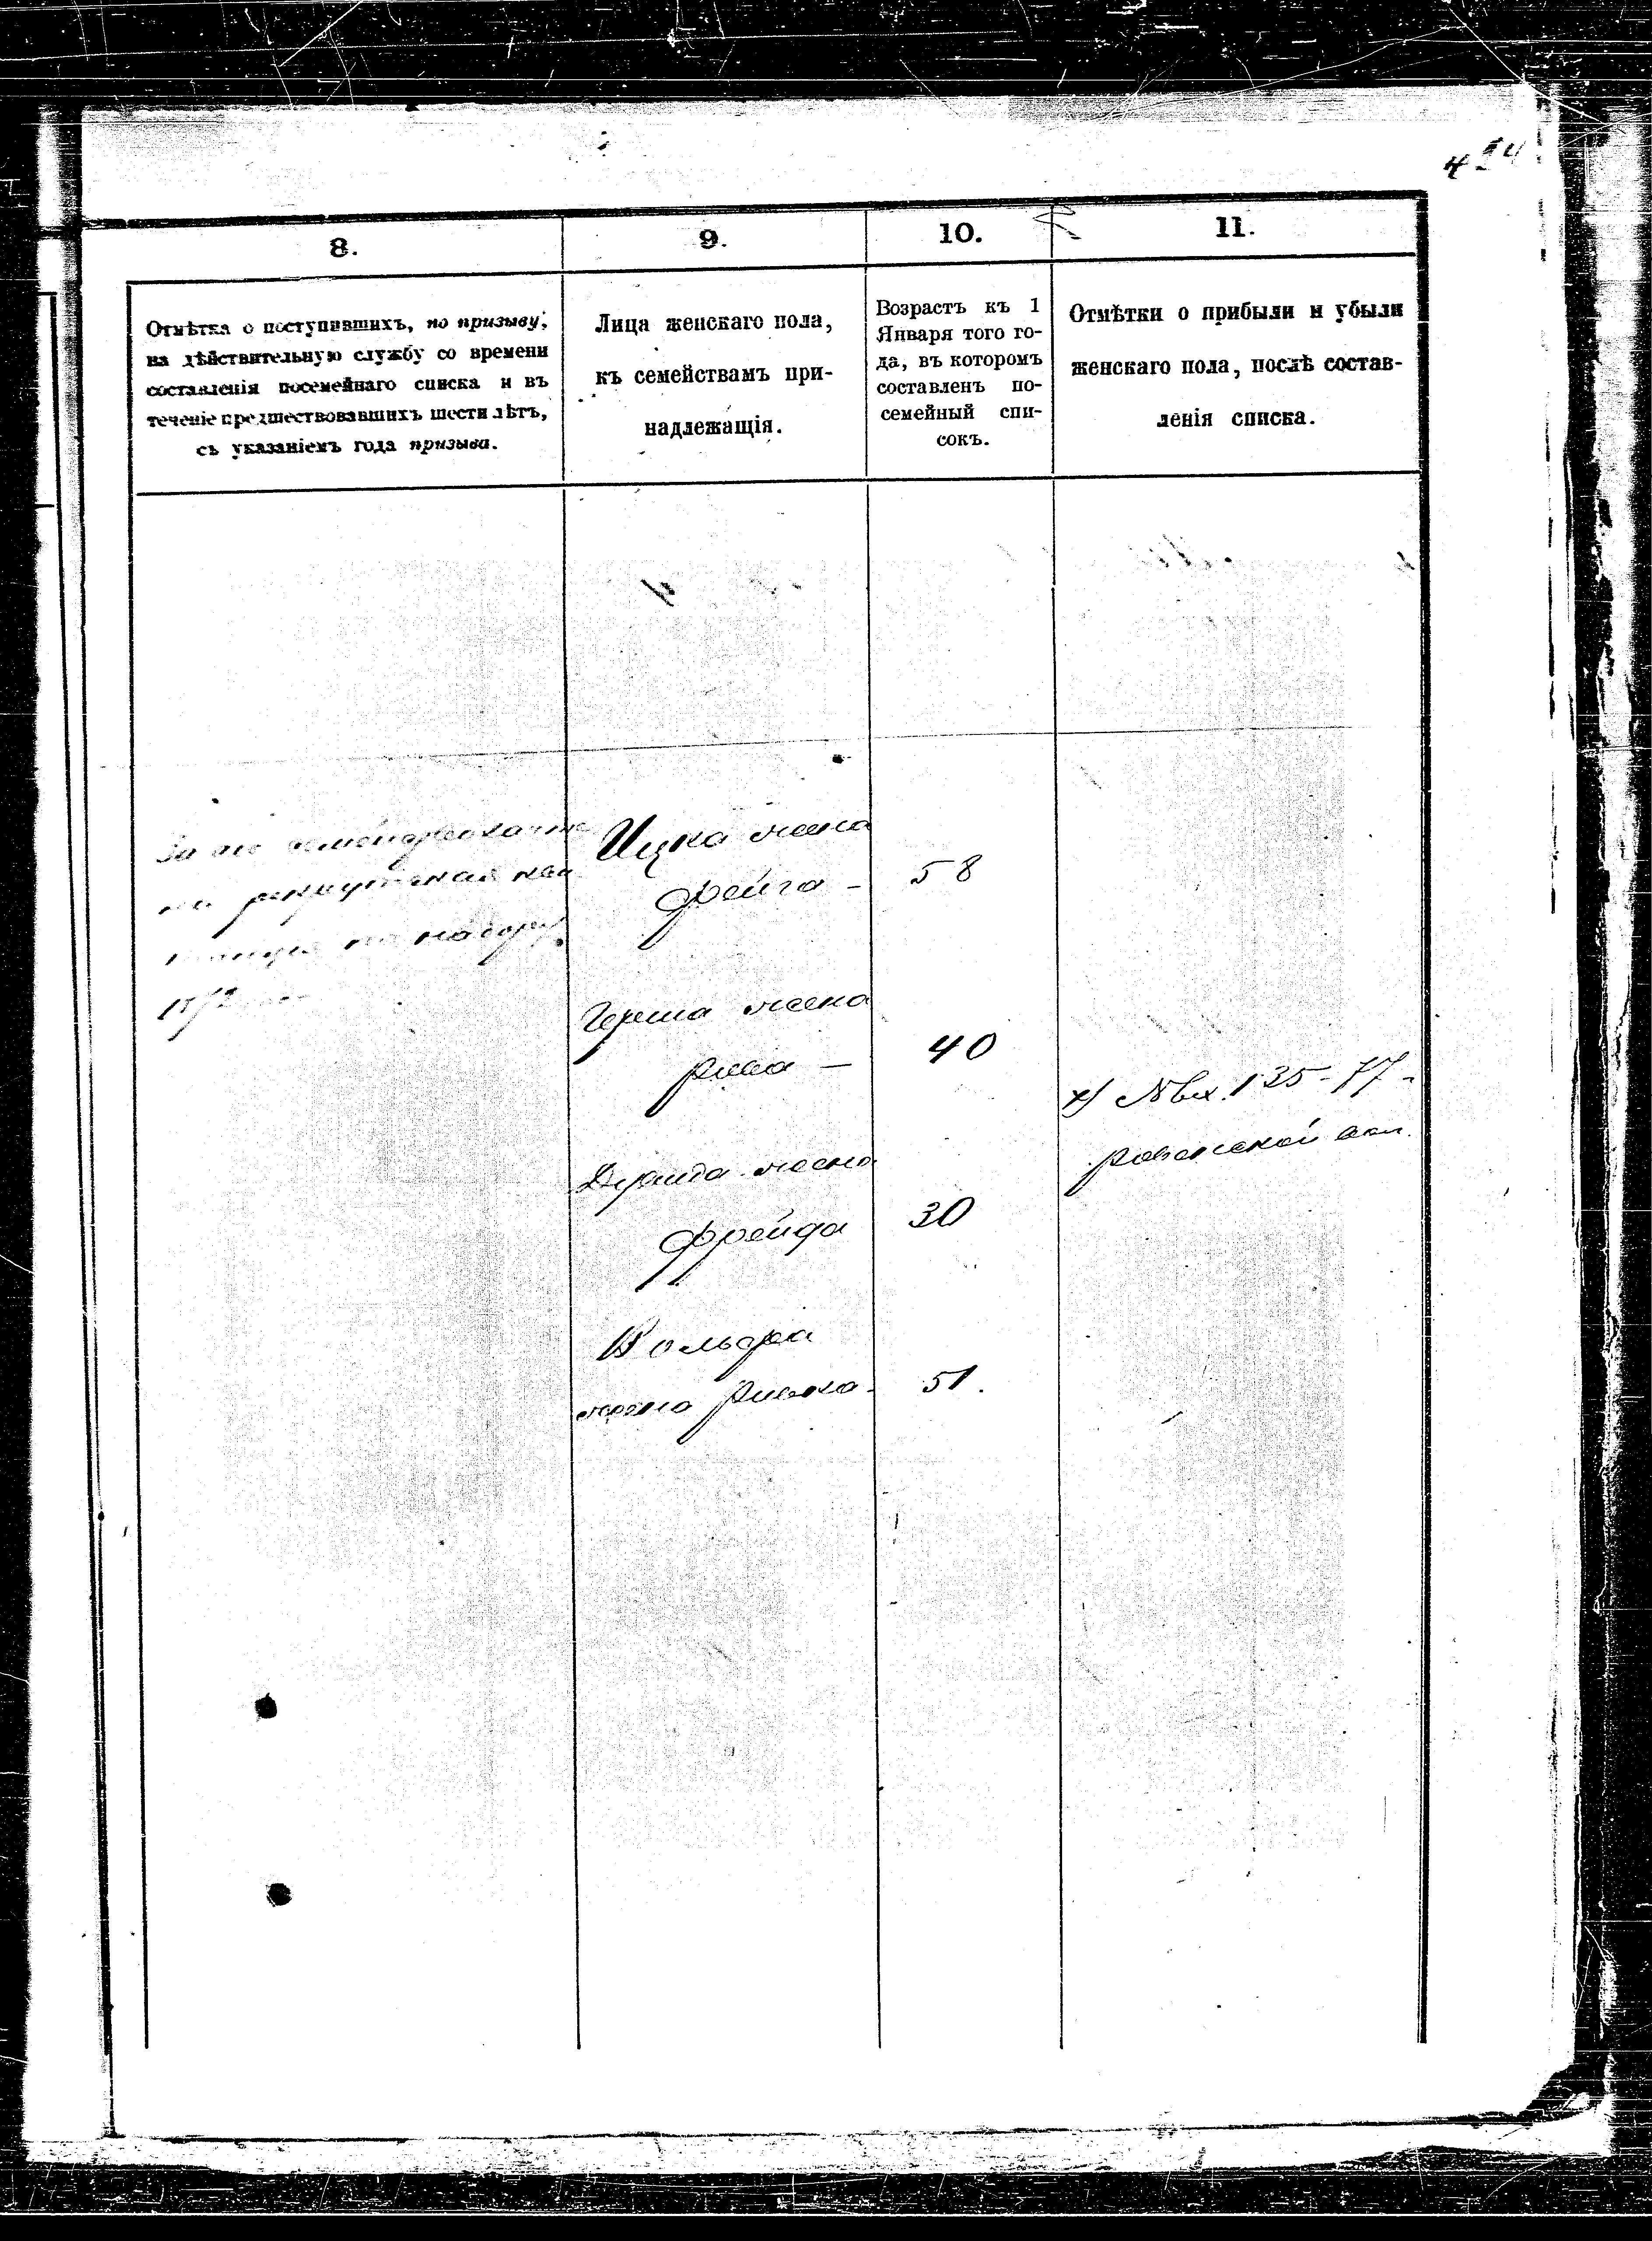 8.
9.
10.
11.
Отмѣтка о поступившихъ, по призыву,
на дѣйствительную службу со времени
составленія посемейнаго списка и въ
теченіе предшествовавшихъ шести лѣтъ,
съ указаніемъ года призыва.
Лица женскаго пола,
къ семействамъ при-
надлежащія.
Возрастъ къ 1
Января того го-
да, въ которомъ
составленъ по-
семейный спи-
сокъ.
Отмѣтки о прибыли и убыли
женскаго пола, послѣ состав-
ленія списка.
За него
рекрутская
по набору
Ицка жена
Фейга – 58
Герша жена
Рива – 40
жена
Фрейда 30
Вольфа
жена Ривка – 51.
х) № вх. 135-77-